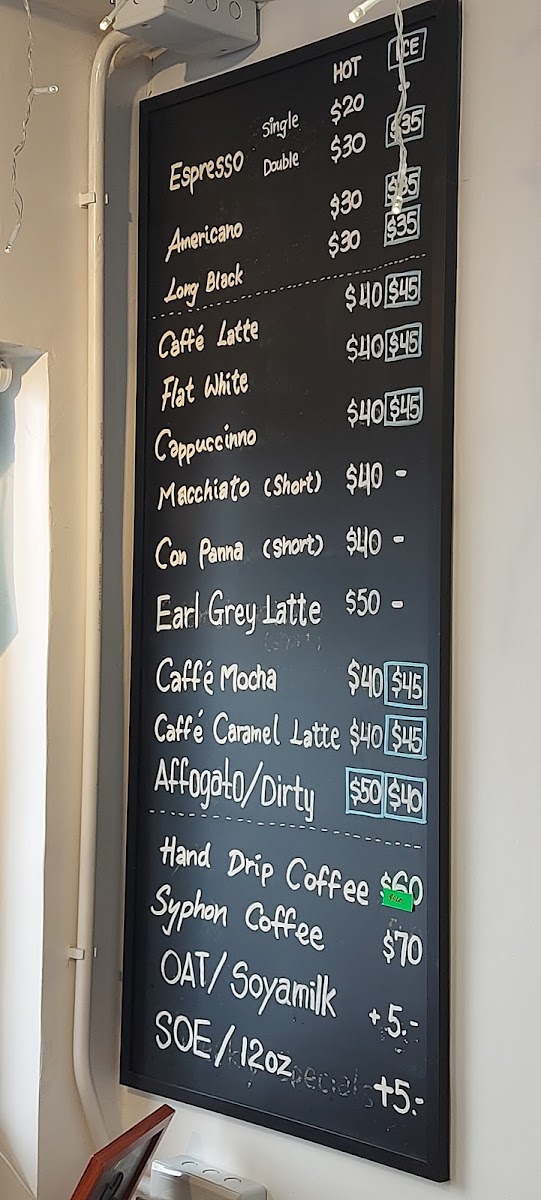 HOT ICE
Single $20 -
Espresso Double $30 $35
Americano $30 $35
Long Black $30 $35
Caffé Latte $40 $45
Flat White $40 $45
Cappuccinno $40 $45
Macchiato (Short) $40 -
Con Panna (Short) $40 -
Earl Grey Latte $50 -
Caffé Mocha $40 $45
Caffé Caramel Latte $40 $45
Affogato/Dirty $50 $40
Hand Drip Coffee $60
Syphon Coffee $70
OAT/Soyamilk +5.-
SOE/12oz +5.-